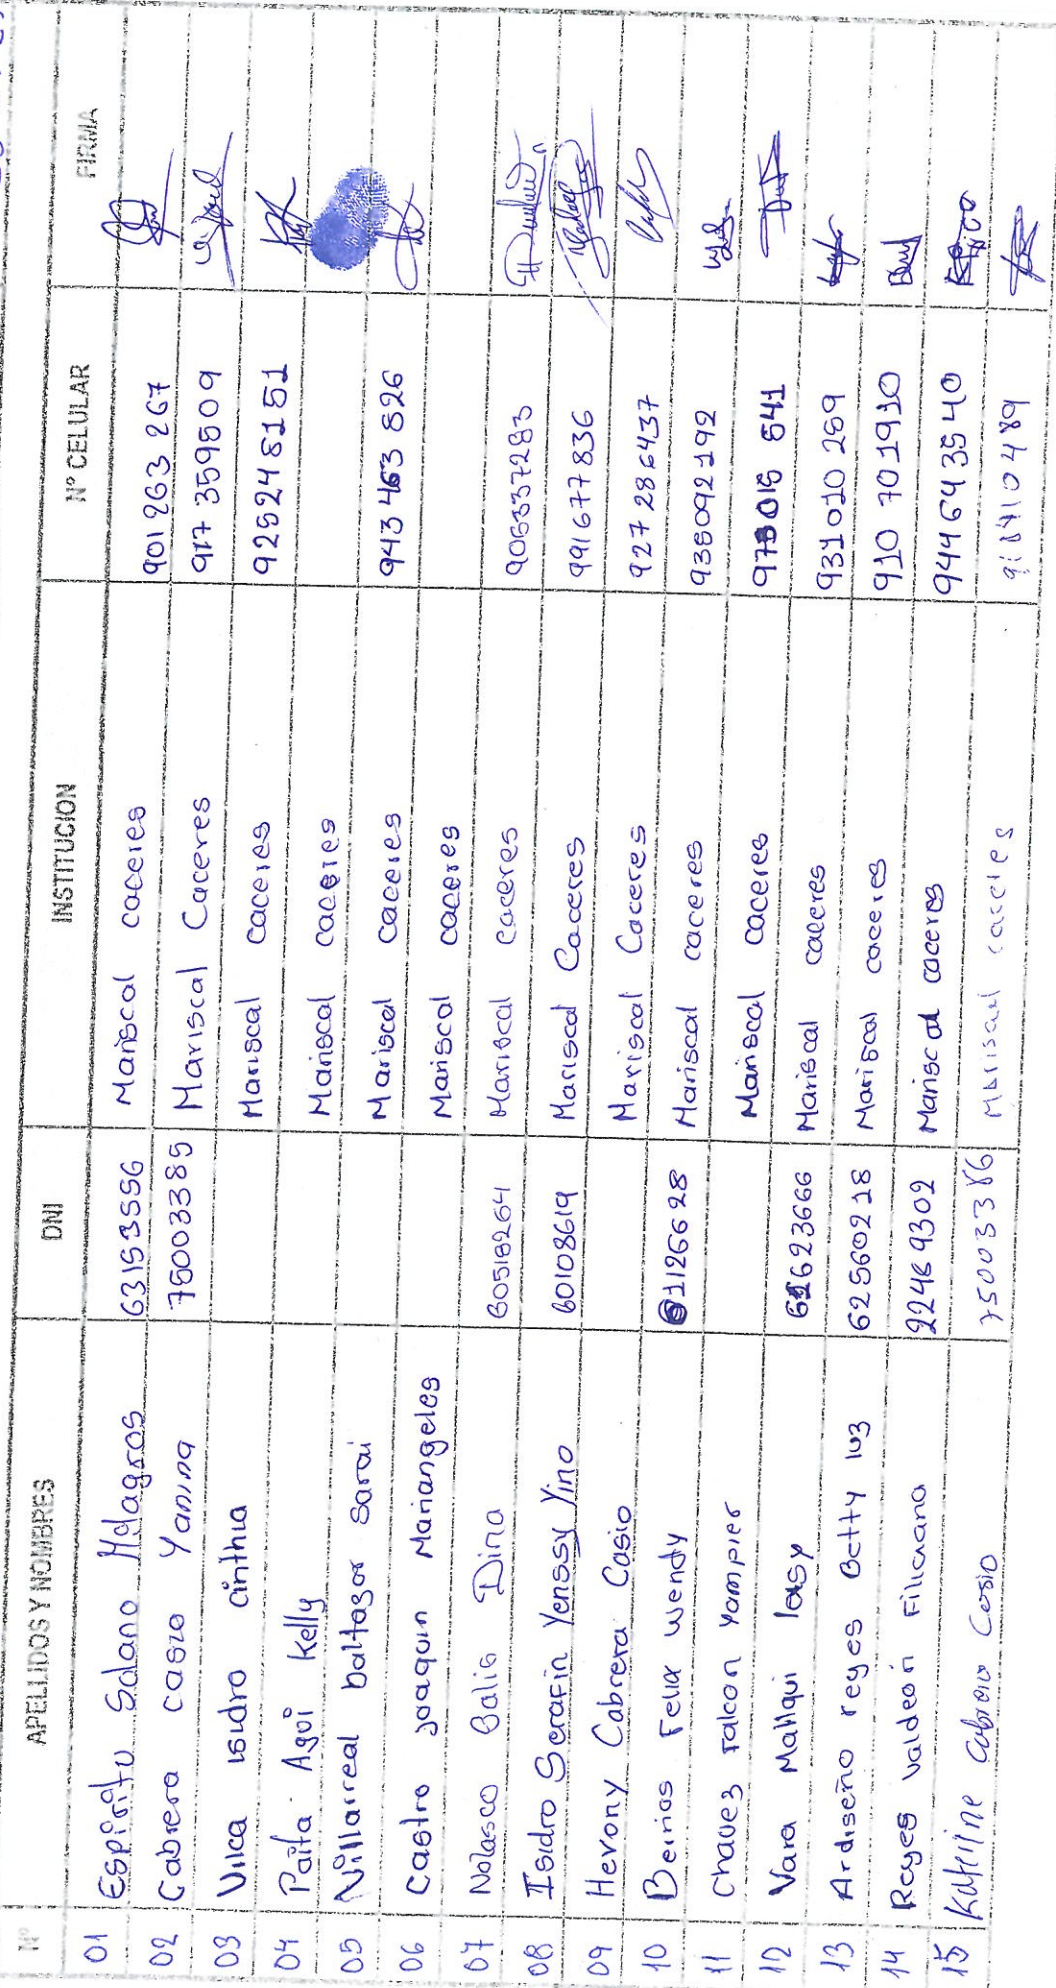 Nº APELLIDOS Y NOMBRES DNI INSTITUCION Nº CELULAR FIRMA
01 Espíritu Solano Milagros 63153556 Mariscal caceres 901 263 267
02 Cabrera casio Yanina 75003385 Mariscal Caceres 917 359509
03 Vilca isidro cinthia Mariscal caceres 925248151
04 Paita Agui Kelly Mariscal caceres
05 Villarreal baltazar sarai Mariscal caceres 943 463 826
06 Castro joaquin Mariangeles Mariscal caceres
07 Nolasco Balis Dina 60518264 Mariscal caceres 906337283
08 Isidro Serafin Yenssy Yino 60108619 Mariscal Caceres 991677836
09 Herony Cabrera Casio Mariscal Caceres 927 286437
10 Berrios Felix wendy 61126628 Mariscal caceres 935092192
11 Chavez Falcon Yampier Mariscal caceres 973015 641
12 Vara Mallqui lesy 61623666 Mariscal caceres 931 010 259
13 Ardiseño reyes Betty luz 62560218 Mariscal caceres 910 701910
14 Reyes Valdeón Filiciana 22469302 Mariscal caceres 944643540
15 Katrine Cabrera Cosio 75003386 Mariscal caceres 918410489